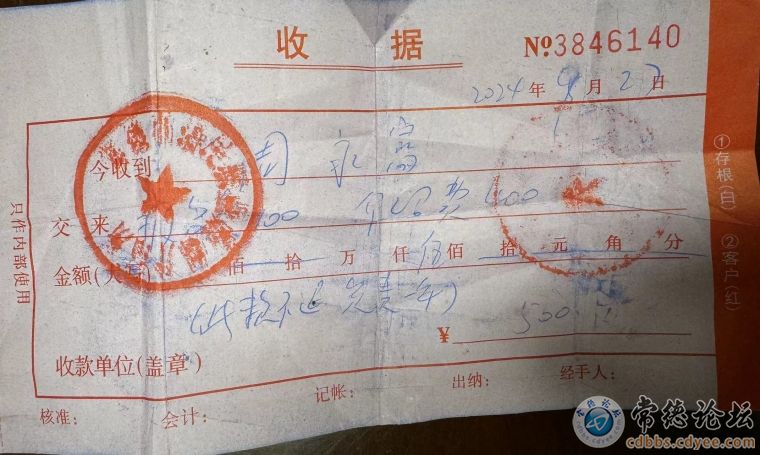 收据 №3846140
2024年9月27日
今收到 周永富
交来 100 介绍费400
金额(大写) 佰拾万仟伍佰拾元角分
(此款不退 负责一年)
¥ 500
收款单位(盖章)
核准: 会计: 记帐: 出纳: 经手人:
只作内部使用
①存根(白) ②客户(红)
常德论坛
cdbbs.cdyee.com